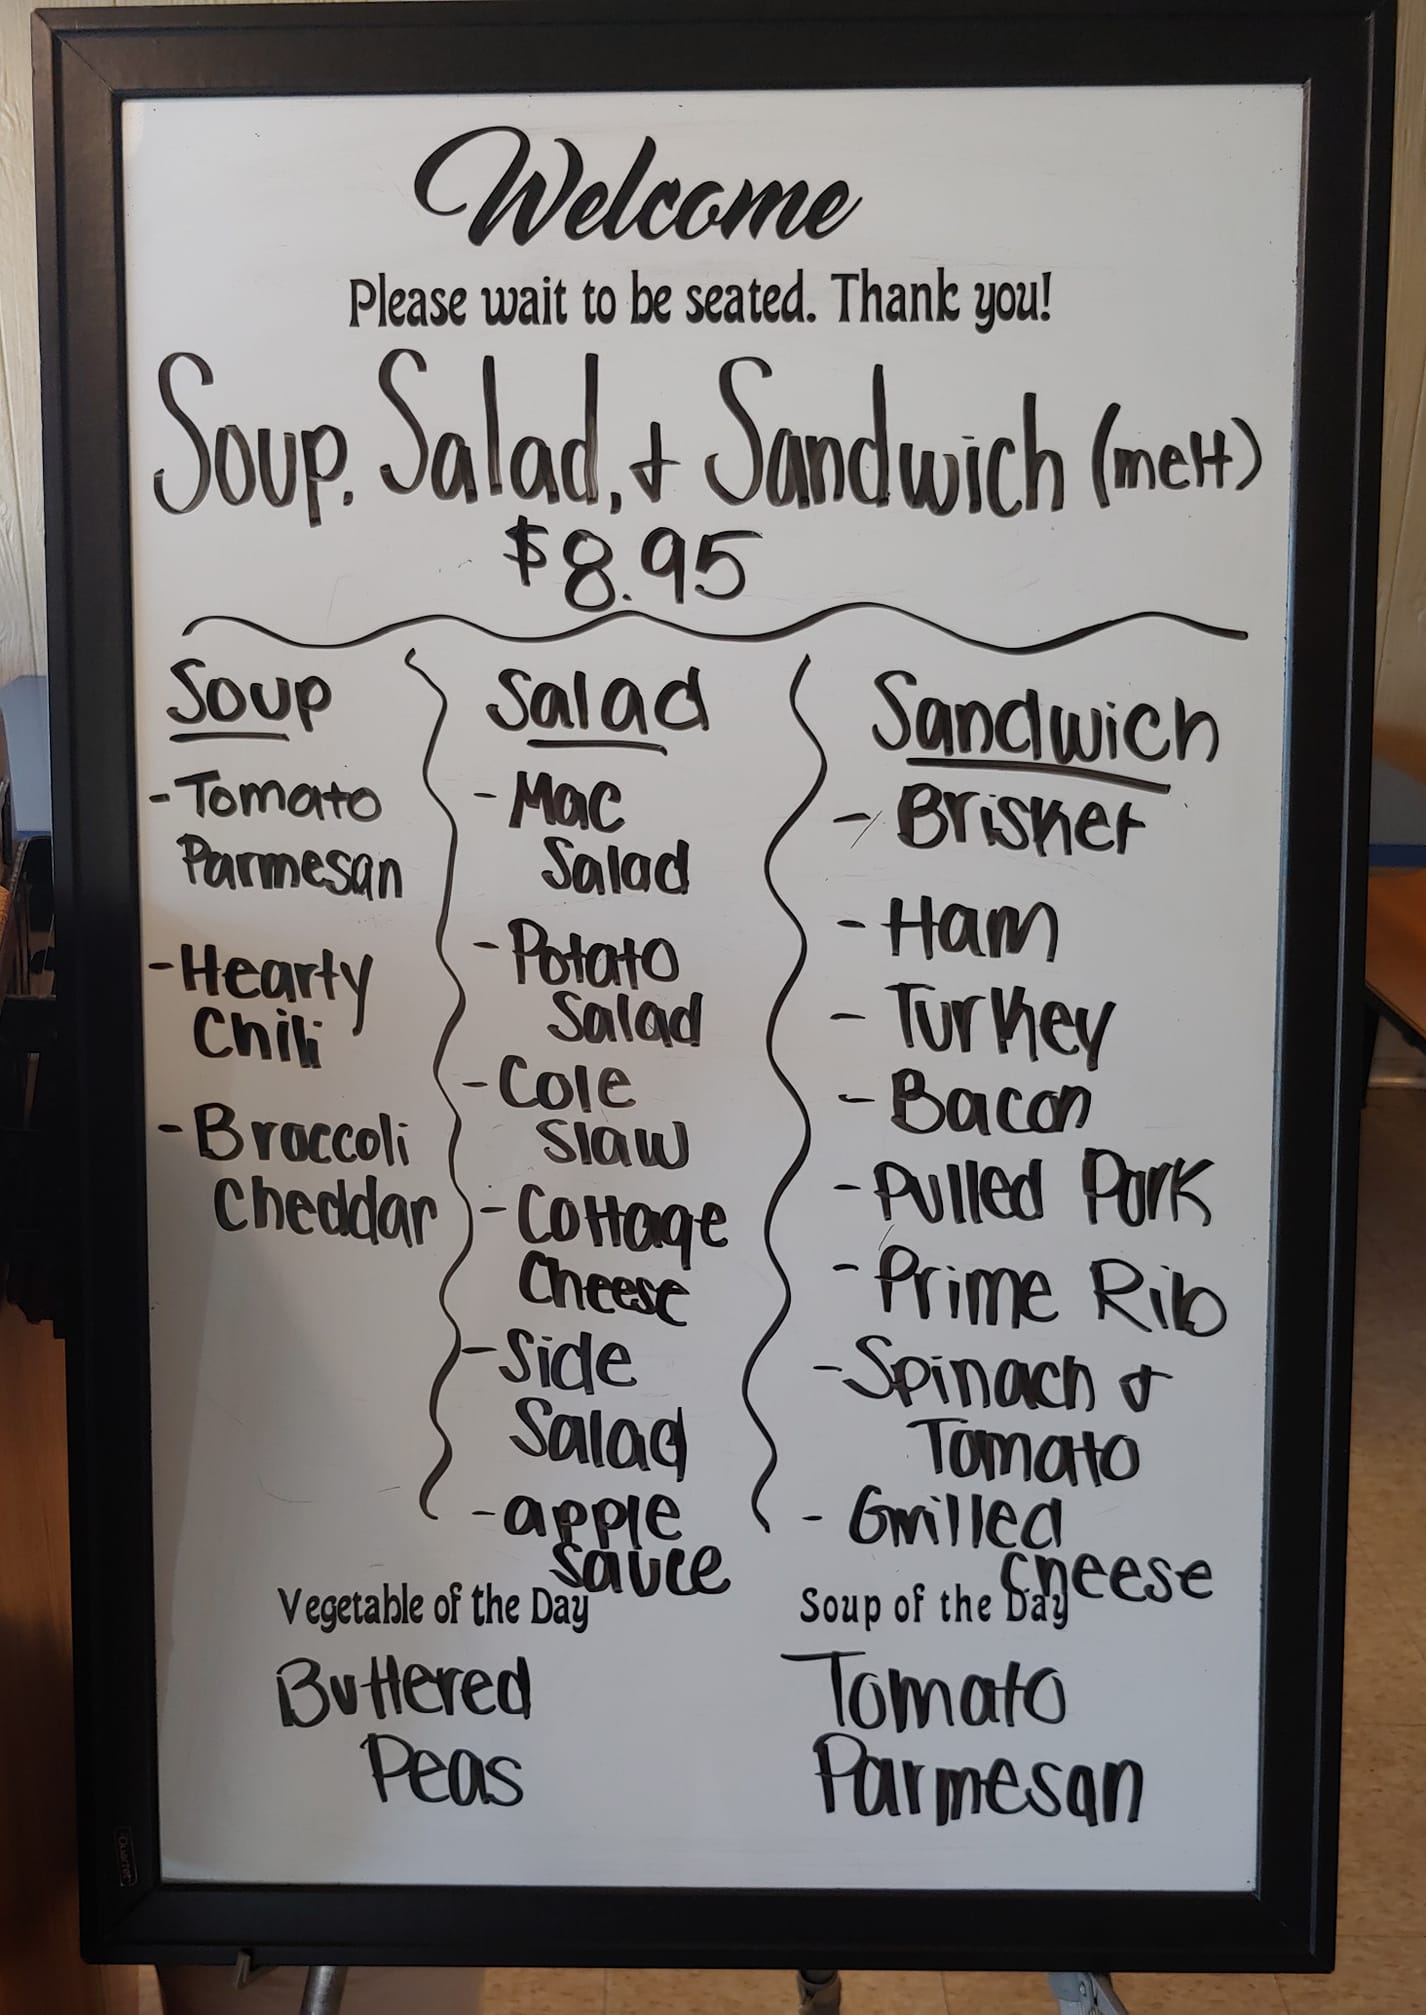 Welcome
Please wait to be seated. Thank you!
Soup, Salad, & Sandwich (melt)
$8.95
Soup
-Tomato
Parmesan
-Hearty
Chili
-Broccoli
Cheddar
Salad
-Mac
Salad
-Potato
Salad
-Cole
Slaw
-Cottage
Cheese
-Side
Salad
-apple
sauce
Sandwich
-Brisket
-Ham
-Turkey
-Bacon
-Pulled Pork
-Prime Rib
-Spinach &
Tomato
-Grilled
Cheese
Vegetable of the Day
Buttered
Peas
Soup of the Day
Tomato
Parmesan
Quartet